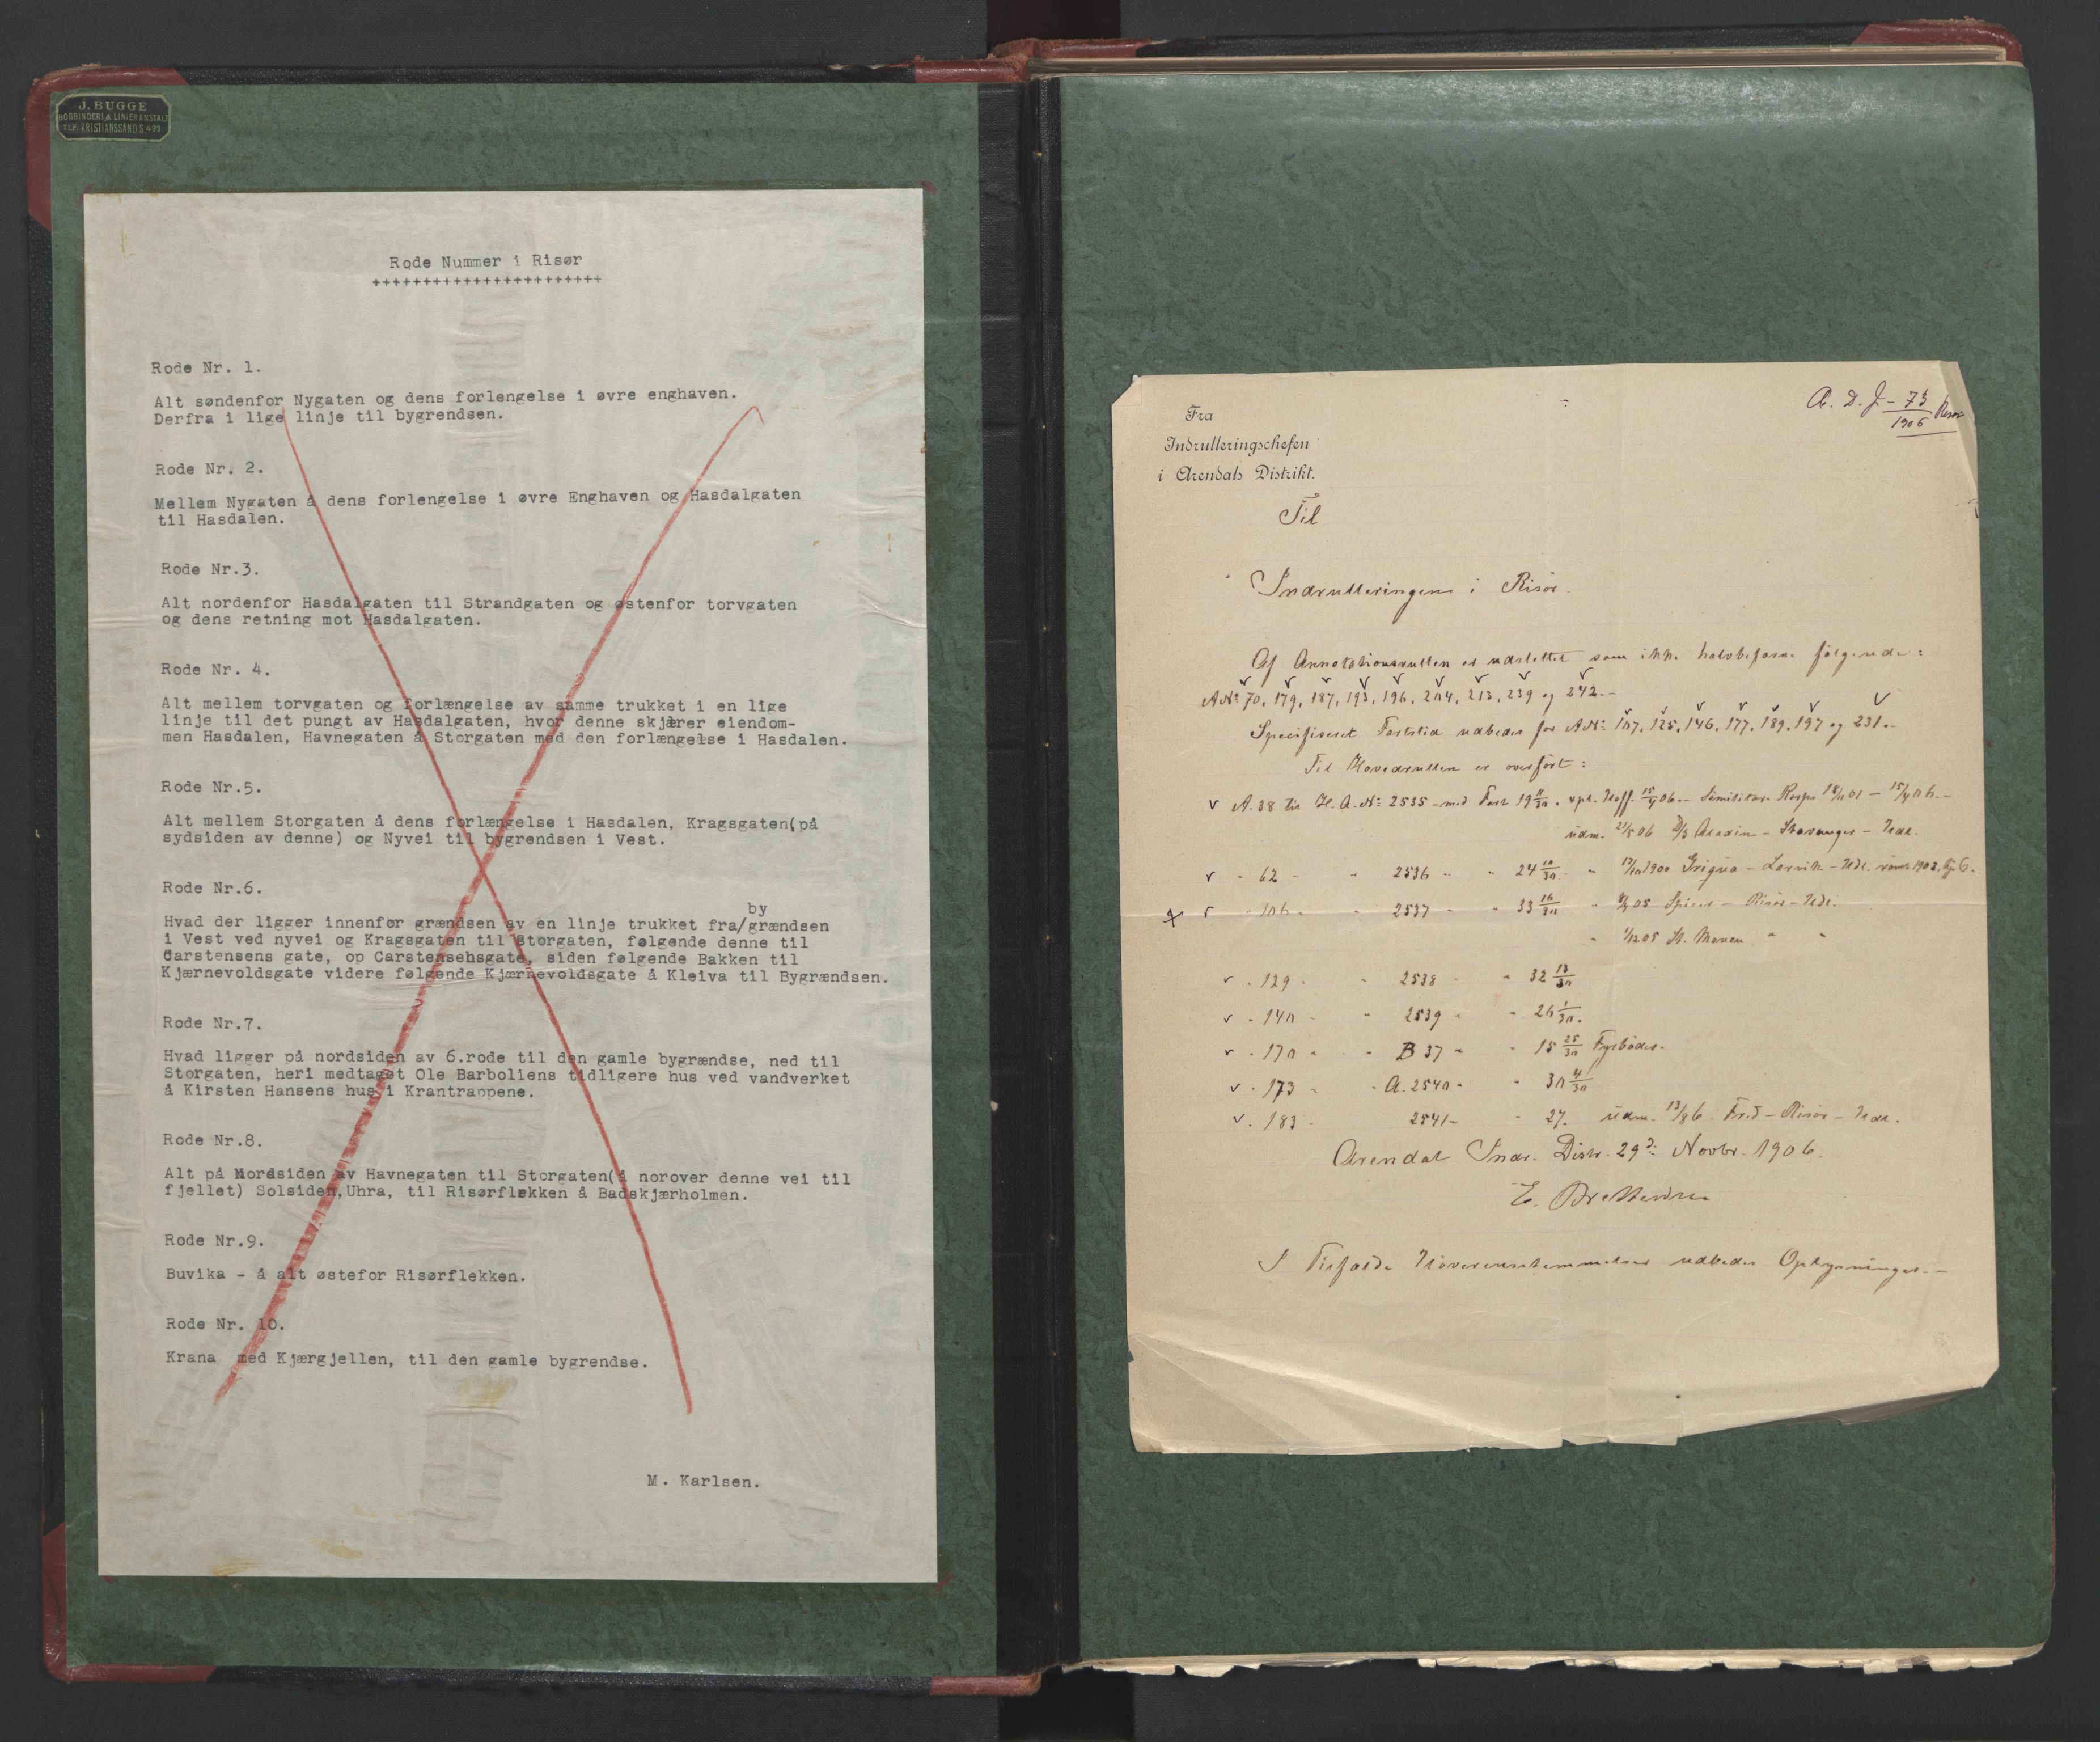 J. BUGGE
BOGBINDERI & LINIERANSTALT
TLF. KRISTIANSSAND S. 491
Rode Nummer i Risør
+++++++++++++++++++++++
Rode Nr. 1.
Alt søndenfor Nygaten og dens forlengelse i øvre enghaven.
Derfra i lige linje til bygrendsen.
Rode Nr. 2.
Mellem Nygaten å dens forlengelse i øvre Enghaven og Hasdalgaten
til Hasdalen.
Rode Nr.3.
Alt nordenfor Hasdalgaten til Strandgaten og østenfor torvgaten
og dens retning mot Hasdalgaten.
Rode Nr. 4.
Alt mellem torvgaten og forlængelse av samme trukket i en lige
linje til det pungt av Hasdalgaten, hvor denne skjærer eiendom-
men Hasdalen, Havnegaten å Storgaten med den forlængelse i Hasdalen.
Rode Nr.5.
Alt mellem Storgaten å dens forlængelse i Hasdalen, Kragsgaten(på
sydsiden av denne) og Nyvei til bygrendsen i Vest.
Rode Nr.6.
by
Hvad der ligger innenfor grændsen av en linje trukket fra/grændsen
i Vest ved nyvei og Kragsgaten til Storgaten, følgende denne til
Carstensens gate, op Carstensensgate, siden følgende Bakken til
Kjærnevoldsgate videre følgende Kjærnevoldsgate å Kleiva til Bygrændsen.
Rode Nr.7.
Hvad ligger på nordsiden av 6.rode til den gamle bygrændse, ned til
Storgaten, heri medtaget Ole Barboliens tidligere hus ved vandverket
å Kirsten Hansens hus i Krantrappene.
Rode Nr.8.
Alt på Nordsiden av Havnegaten til Storgaten(å norover denne vei til
fjellet) Solsiden,Uhra, til Risørflekken å Badskjærholmen.
Rode Nr.9.
Buvika - å alt østefor Risørflekken.
Rode Nr. 10.
Krana med Kjærgjellen, til den gamle bygrendse.
M. Karlsen.
A. D. J - 73
1906
Fra
Indrulleringschefen
i Arendals Distrikt.
Til
Indrulleringen i Risør.
Af Annotationsrullen er udslettet som ikke halvbefarne følgende:
A№ 70, 179, 187, 193, 196, 204, 213, 239 og 242.-
Specificeret Fartstid udbedes for A№: 107, 125, 146, 177, 189, 197 og 231.-
Til Hovedrullen er overført:
v A. 38 til H. A. №: 2535 - med Fart 19 11/30
21/5 06 Aladin - Stavanger -
v - 62 - " 2536 " - 24 10/30 - " 1900 Grigua - Larvik -
v - 106 - " 2537 - " 33 16/30 - 05 Risør -
v - 129 - " 2538 - " 32 13/30
v - 140 - " 2539 - " 26 1/30.
v - 170 - " B 37 - " 15 25/30 Fyrbøder.
v - 173 - " A. 2540 - " 30 4/30
v - 183 - 2541 - " 27. udm. 13/8 6 - Frid - Risør -
Arendal Indr. Distr. 29d: Novbr. 1906.
I Tilfælde Uoverensstemmelser udbedes Oplysninger.-